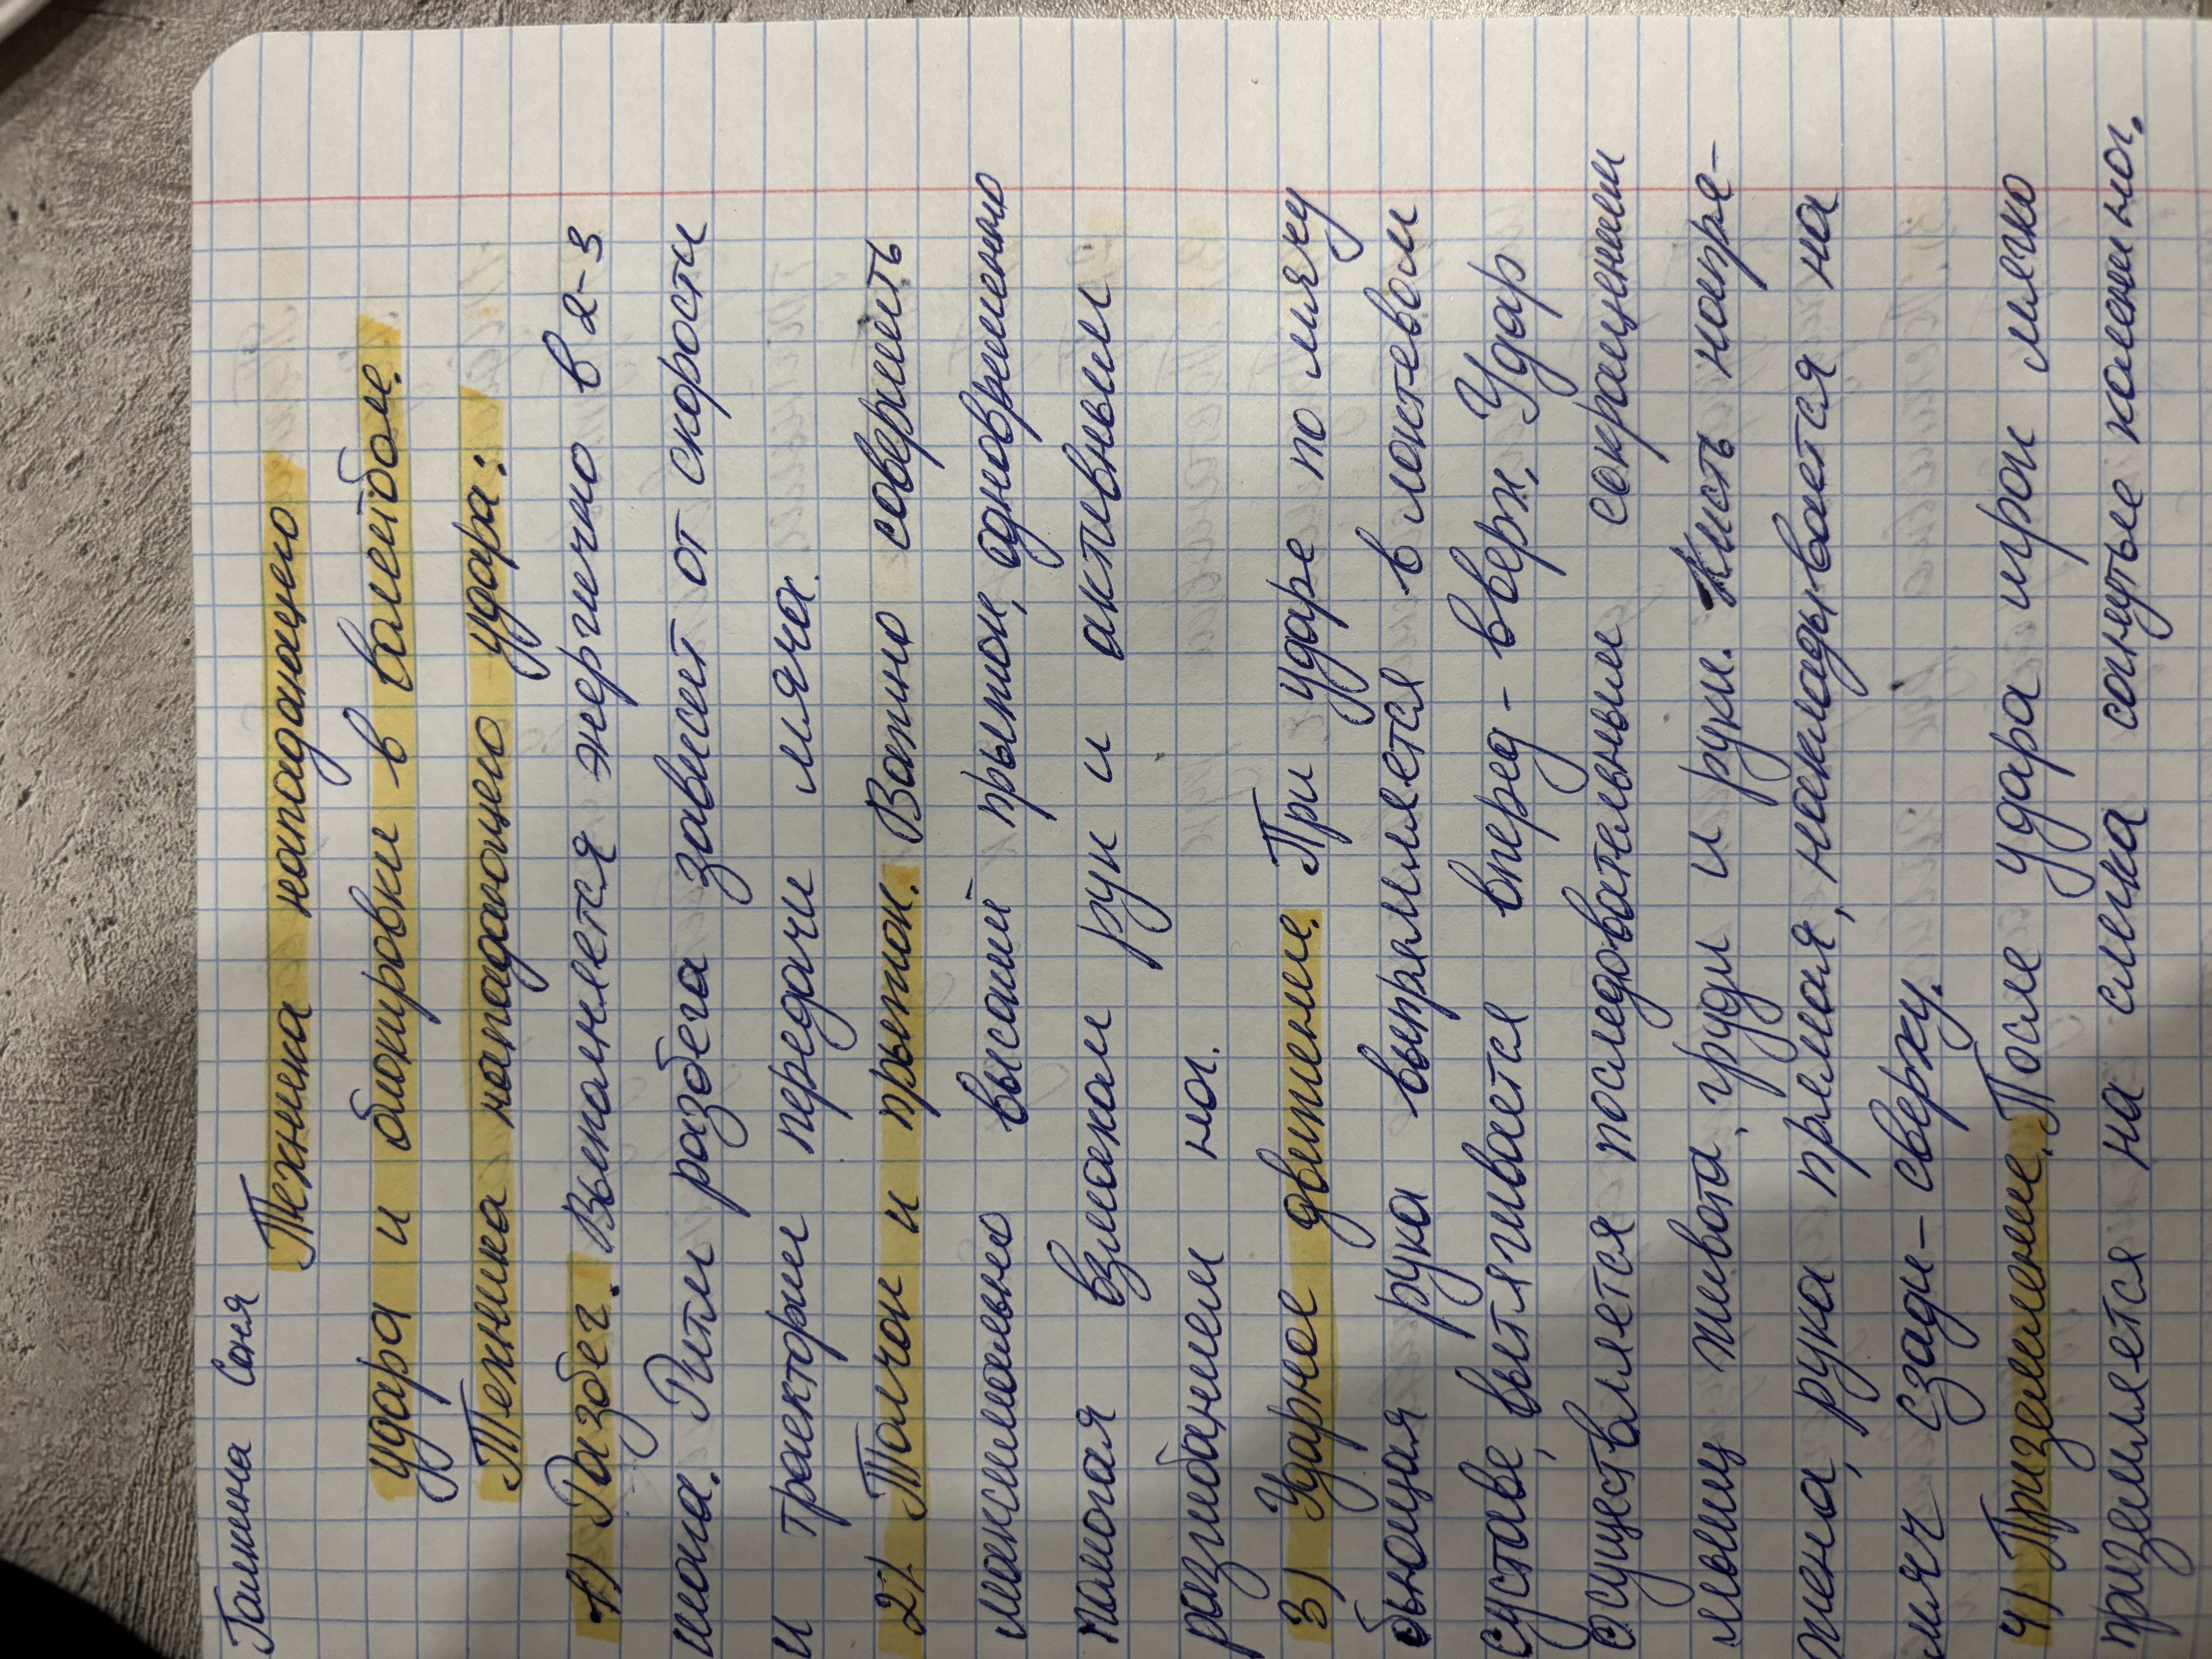 Галкина Соня
Техника нападающего
удара и блокировки в волейболе.
Техника нападающего удара:
1) Разбег. Выполняется энергично в 2-3
шага. Ритм разбега зависит от скорости
и траектории передачи мяча.
2) Толчок и прыжок. Важно совершить
максимально высокий прыжок, одновременно
помогая взмахом рук и активным
разгибанием ног.
3) Ударное движение. При ударе по мячу
бьющая рука выпрямляется в локтевом
суставе, вытягивается вперед-вверх. Удар
осуществляется последовательным сокращением
мышц живота, груди и руки. Кисть напря-
жена, рука прямая, накладывается на
мяч сзади-сверху.
4) Приземление. После удара игрок мягко
приземляется на слегка согнутые колени ног.